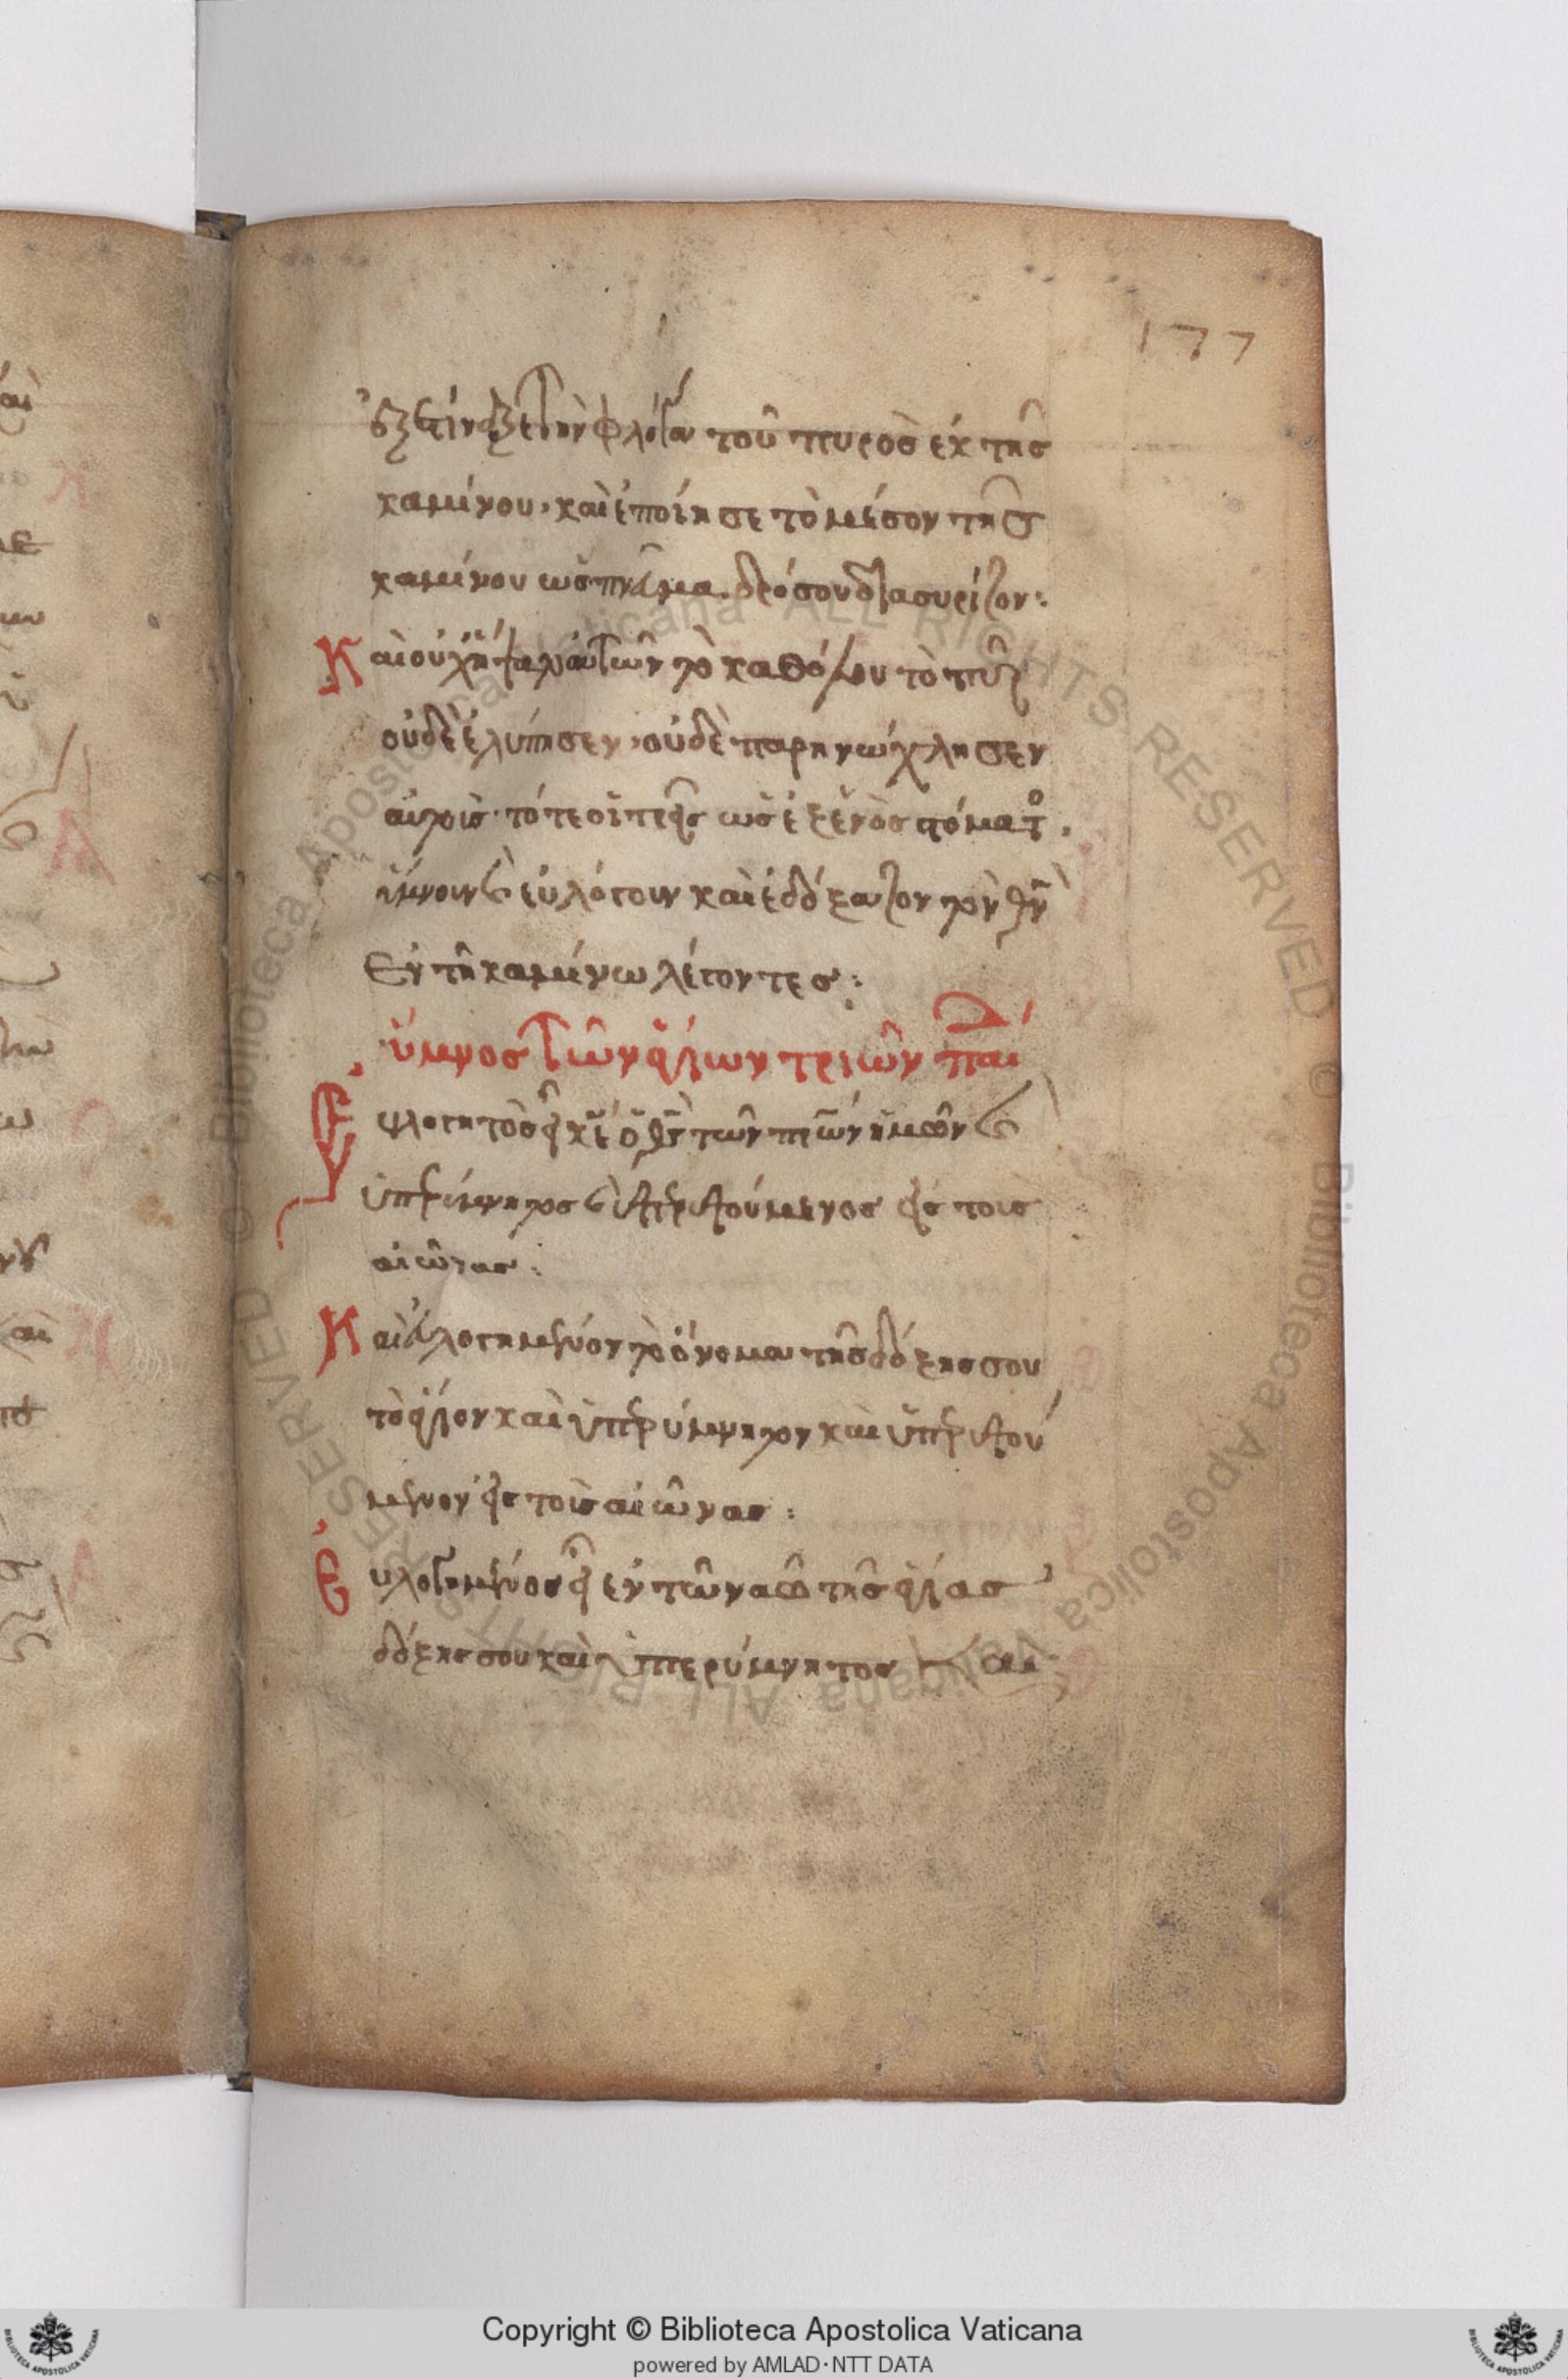 177
ἐξετίναξε τὴν φλόγα τοῦ πυρὸς ἐκ τῆς
καμίνου· καὶ ἐποίησε τὸ μέσον τῆς
καμίνου ὡς πνεῦμα δρόσου διασυρίζον:
Καὶ οὐχ ἥψατο αὐτῶν τὸ καθόλου τὸ πῦρ
οὐδὲ ἐλύπησεν· οὐδὲ παρηνώχλησεν
αὐτοῖς· τότε οἱ τρεῖς ὡς ἐξ ἑνὸς στόματ
ὕμνουν καὶ εὐλόγουν καὶ ἐδόξαζον τὸν θν
ἐν τῆ καμίνω λέγοντες:
ὕμνος τῶν ἁγίων τριῶν παί
Εὐλογητὸς εἶ κε ὁ θς τῶν πρων ἡμῶν καὶ
ὑπερύμνητος καὶ ὑπερυψούμενος εἰς τοὺς
αἰῶνας:
Καὶ εὐλογημένον τὸ ὄνομα τῆς δόξης σου
τὸ ἅγιον καὶ ὑπερύμνητον καὶ ὑπερυψού
μενον εἰς τοὺς αἰῶνας:
Εὐλογημένος εἶ ἐν τῶ ναῶ τῆς ἁγίας
δόξης σου καὶ ὑπερύμνητος
Copyright © Biblioteca Apostolica Vaticana
powered by AMLAD·NTT DATA